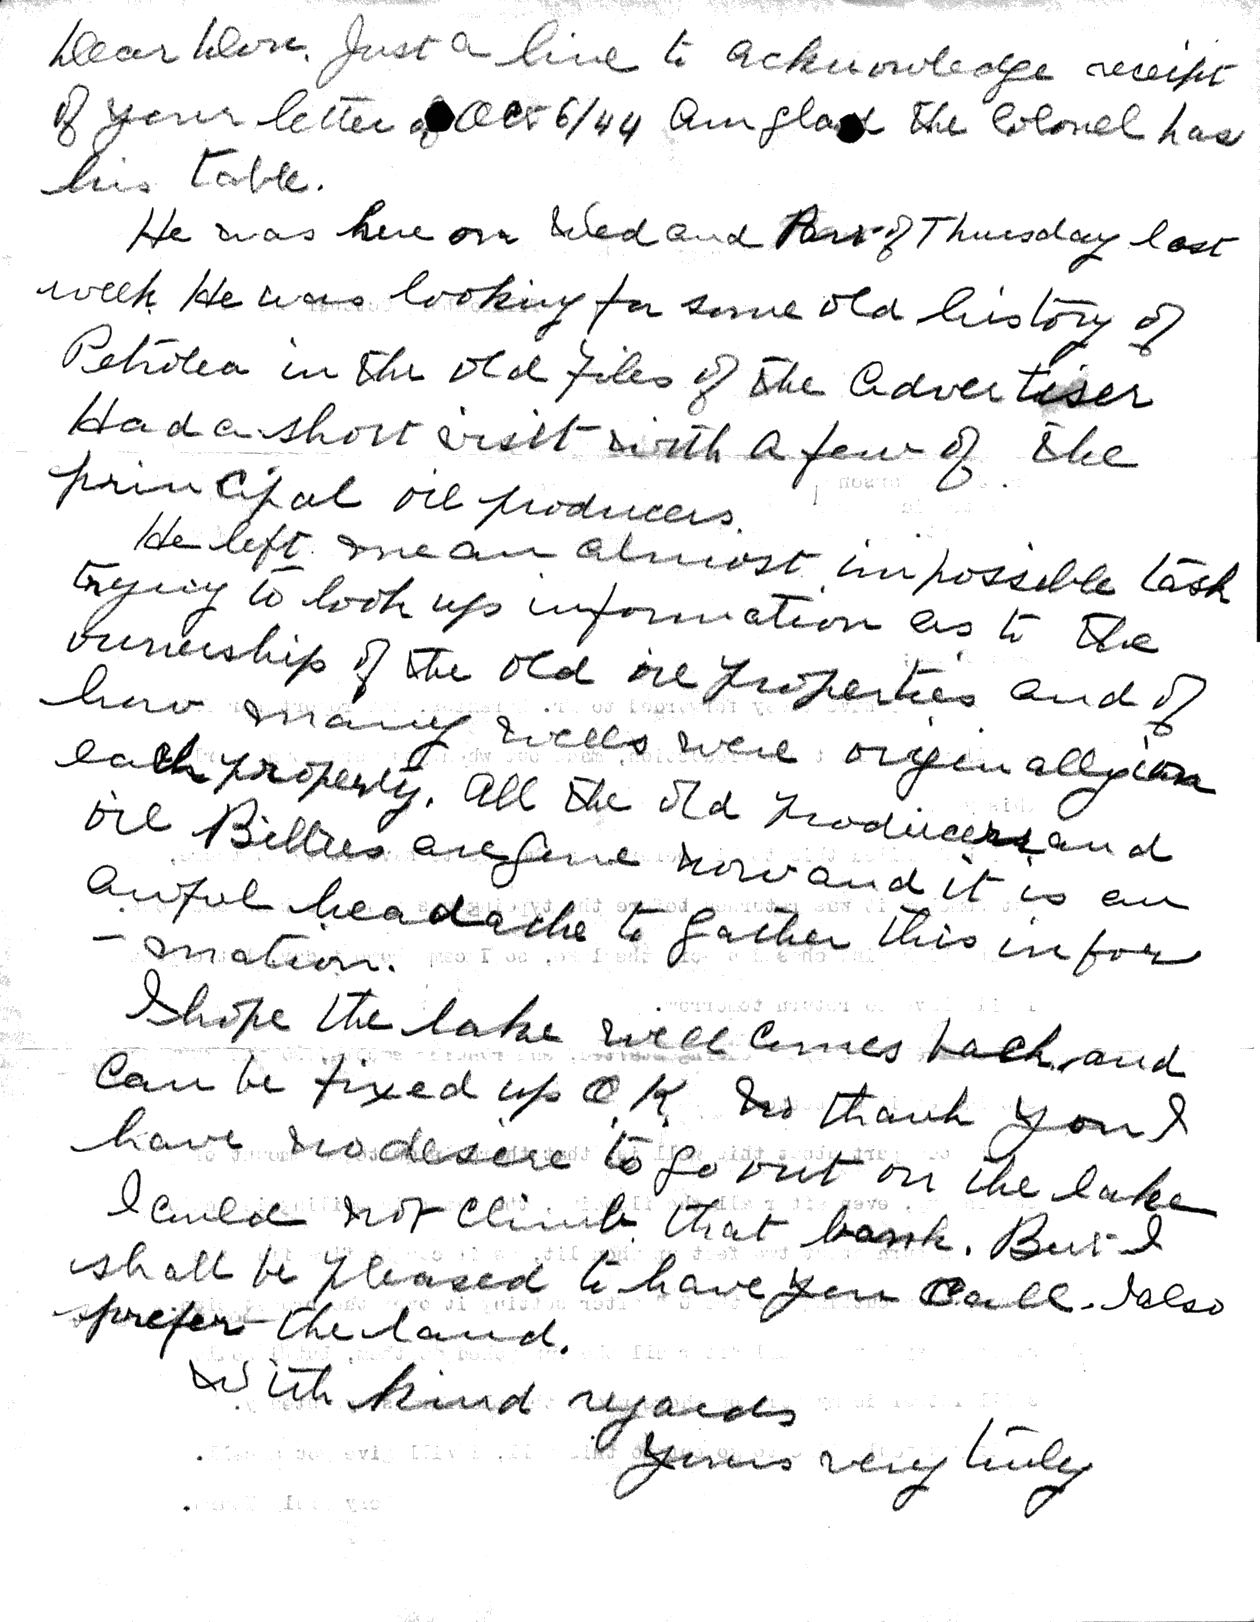 Dear Dore. Just a line to acknowledge receipt
of your letter of Oct 6/44 Am glad the Colonel has
his table.
He was here on Wed and Part of Thursday last
week. He was looking for some old history of
Petrolea in the old files of the Advertiser
Had a short visit with a few of the
principal oil producers.
He left me an almost impossible task
trying to look up information as to the
ownership of the old oil properties and of
how many wells were originally on
each property. All the old producers and
oil Billies are gone now and it is an
awful headache to gather this infor
- mation.
I hope the lake well comes back and
can be fixed up O.K. No thank you I
have no desire to go out on the lake
I could not climb that bank. But I
shall be pleased to have you call. I also
prefer the land.
With kind regards
Yours very truly